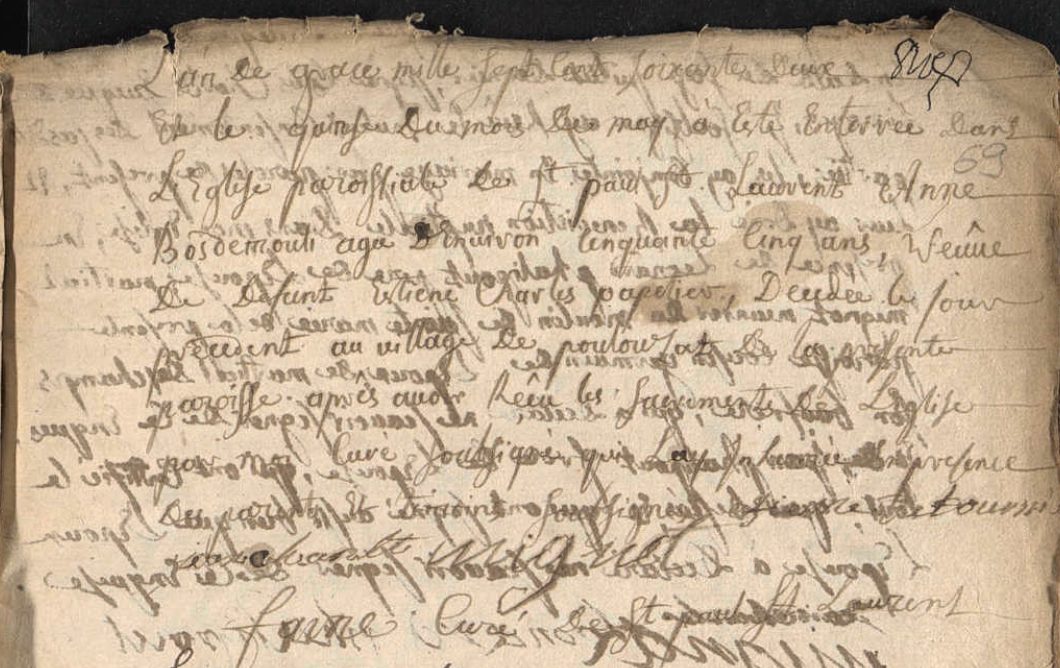 L'an de grace mille sept cent soixante deux
Et le quinse du mois de may a Esté Enterrée dans
69
L'Eglise paroissiale de St paul St Laurent Anne
Bosdemouli agée D'Environ Cinquante Cinq ans Veûve
De Defunt Etiene Charles papetier, Decedée le jour
precedent au village de poulouzat de la presente
paroisse après avoir Reçu les Sacrements de L'Eglise
par moi Curé soussigné qui L'ay Inhumée En presence
Des parents et temoins soussignés
faure Curé de St paul St Laurent